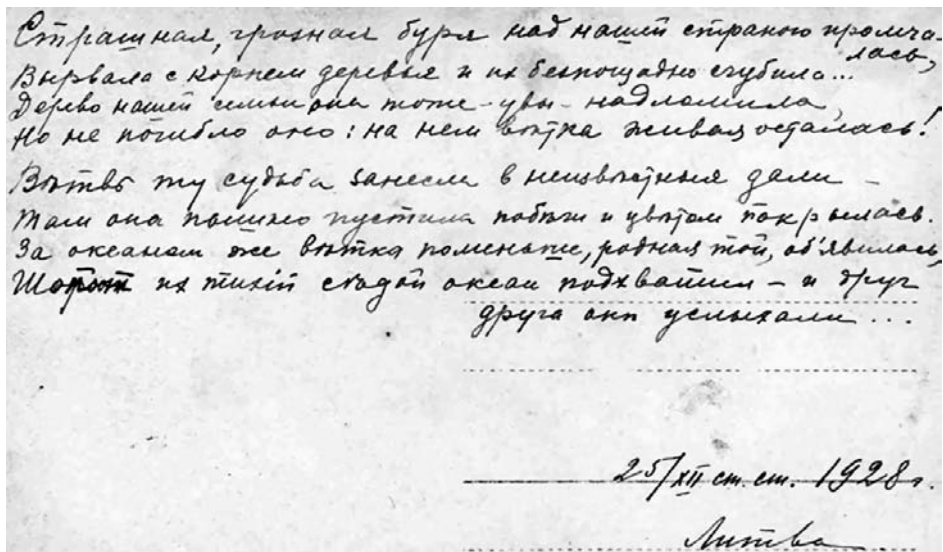 Страшная, грозная буря над нашей страною промча-
лась,
Вырвала с корнем деревья и их безпощадно сгубила...
Дерево нашей семьи она тоже - увы - надломила,
Но не погибло оно: на нем вѣтка живая осталась!
Вѣтвь ту судьба занесла в неизвѣстныя дали -
Там она пышно пустила побѣги и цвѣтом покрылась.
За океаном же вѣтка поменьше, родная той, об'явилась,
Шопот их тихій сѣдой океан подхватил - и друг
друга они услыхали...
25/XII ст. ст. 1928 г.
Литва